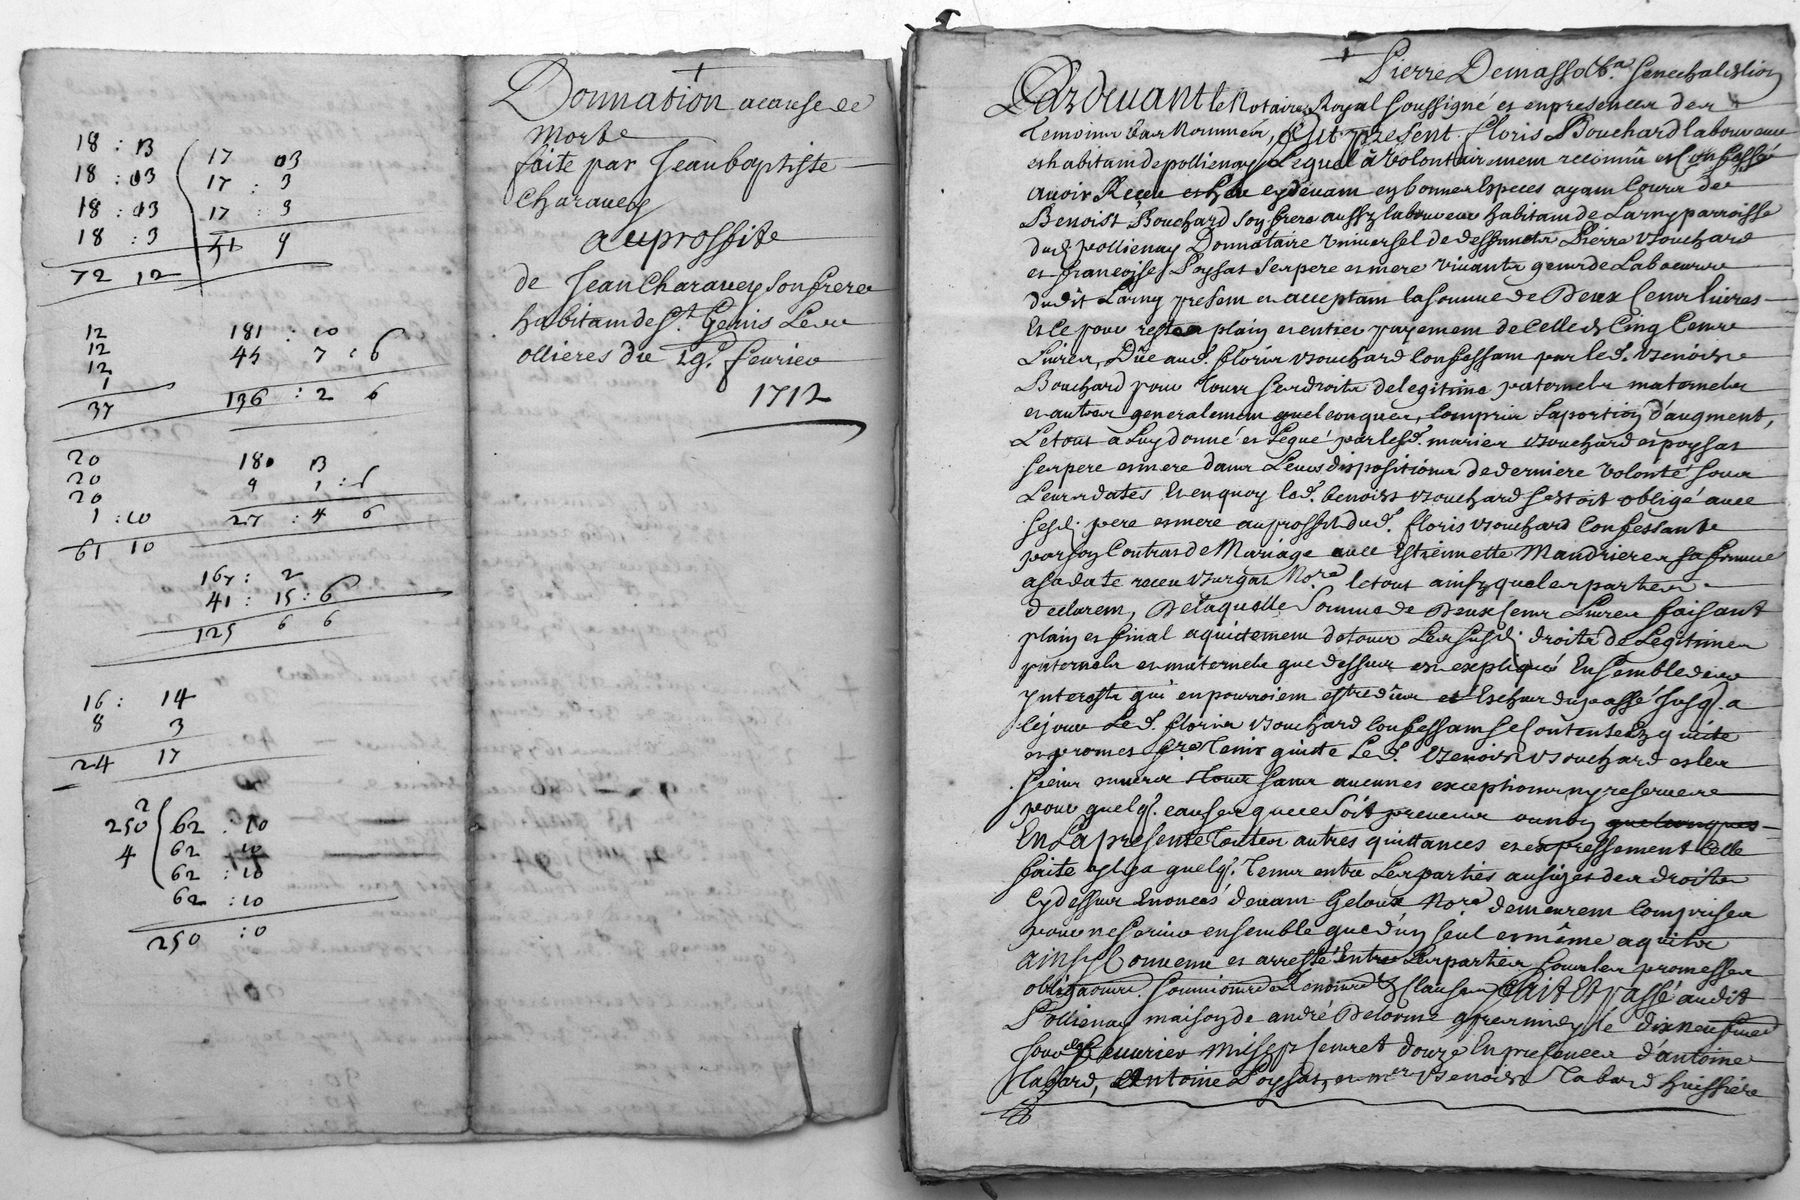 18 : 13
18 : 03
18 : 03
18 : 3
72 12
17 03
17 : 3
17 : 3
51 9
12
12
12
1
37
181 : 10
45 7 : 6
136 : 2 6
20
20
20
1 : 10
61 10
180 13
9 1 : 6
27 : 4 6
167 : 2
41 : 15 : 6
125 6 6
16 : 14
8 3
24 17
250
4
62 : 10
62 10
62 : 10
62 : 10
250 : 0
Donnation acause de
morte
faite par Jean baptiste
Charavey
au proffite
de Jean Charavey son frere
habitam de St. Genis Les
ollieres du 29e. fevrier
1712
Pierre Demasso Bn. senechal de lion
Pardevant le Notaire Royal soussigné et en presence des
temoins bas nommés, fust present floris Bouchard laboureur
et habitant de pollienay Lequel à volontairement reconnû et Confessé
avoir Receu et heu cy devam en bonnes Especes ayam Cours de
Benoist Bouchard son frere aussy laboureur habitam de Larny parroisse
dud. pollienay Donnataire universel de deffuncts Pierre Bouchard
et francoise Poyssat ses pere et mere vivants gens de Labeur
dudit Larny presem et acceptam la somme de Deux Cents livres
Et Ce pour reste plain et entier payement de Celle de Cinq Cents
Livres, Dûe aud. floris Bouchard Confessam par led. Benoist
Bouchard pour tous ses droits de legitime paternels maternels
et autres generalement quelconques, compris la portion d'augment,
Le tout a Luy donné et Legué par lesd. maries Bouchard et poyssat
ses pere et mere dans Leurs dispositions de derniere volonté sous
Leurs dates Et en quoy led. benoist Bouchard sestoit obligé avec
sesd. pere et mere au proffit dud. floris Bouchard Confessant
par son Contrat de Mariage avec Estiennette Mandriere sa femme
a sa date receu Burgat Nore. le tout ainsy que les parties
declarem, De laquelle somme de Deux Cents Livres faisant
plain et final aquictement de tous Les susd. droits de Legitime
paternels et maternels que dessus est expliqué Ensemble des
ynterests qui en pourroiem estre dûes et Escheus du passé jusq. a
ce jour Led. floris Bouchard Confessam se Contente En quitte
et promet fre. tenir quitte Led. Benoist Bouchard et les
siens envers et tous sans aucunes exceptions ny reserve
pour quelq. cause que ce soit preveue ou non quelconques
En La presente toutes autres quittances et expressement Celle
faite il y a quelq. tems entre Les parties au sujet des droits
Cy dessus Enoncés devam Geloux Nore demeurem Comprises
pour ne servir ensemble que d'un seul et même aquit
ainsy Convenu et arresté Entre Les parties sous les promesses
obligaons. soumions. Renons. & Clauses fait Et passé audit
Pollienay maison de andré Delorme apres midy le dix neufvieme
jour de fevrier mil sept Cents et douze En presence d'antoine
Tabard, Antoine Poyssat, et mre Benoist Tabard huissier